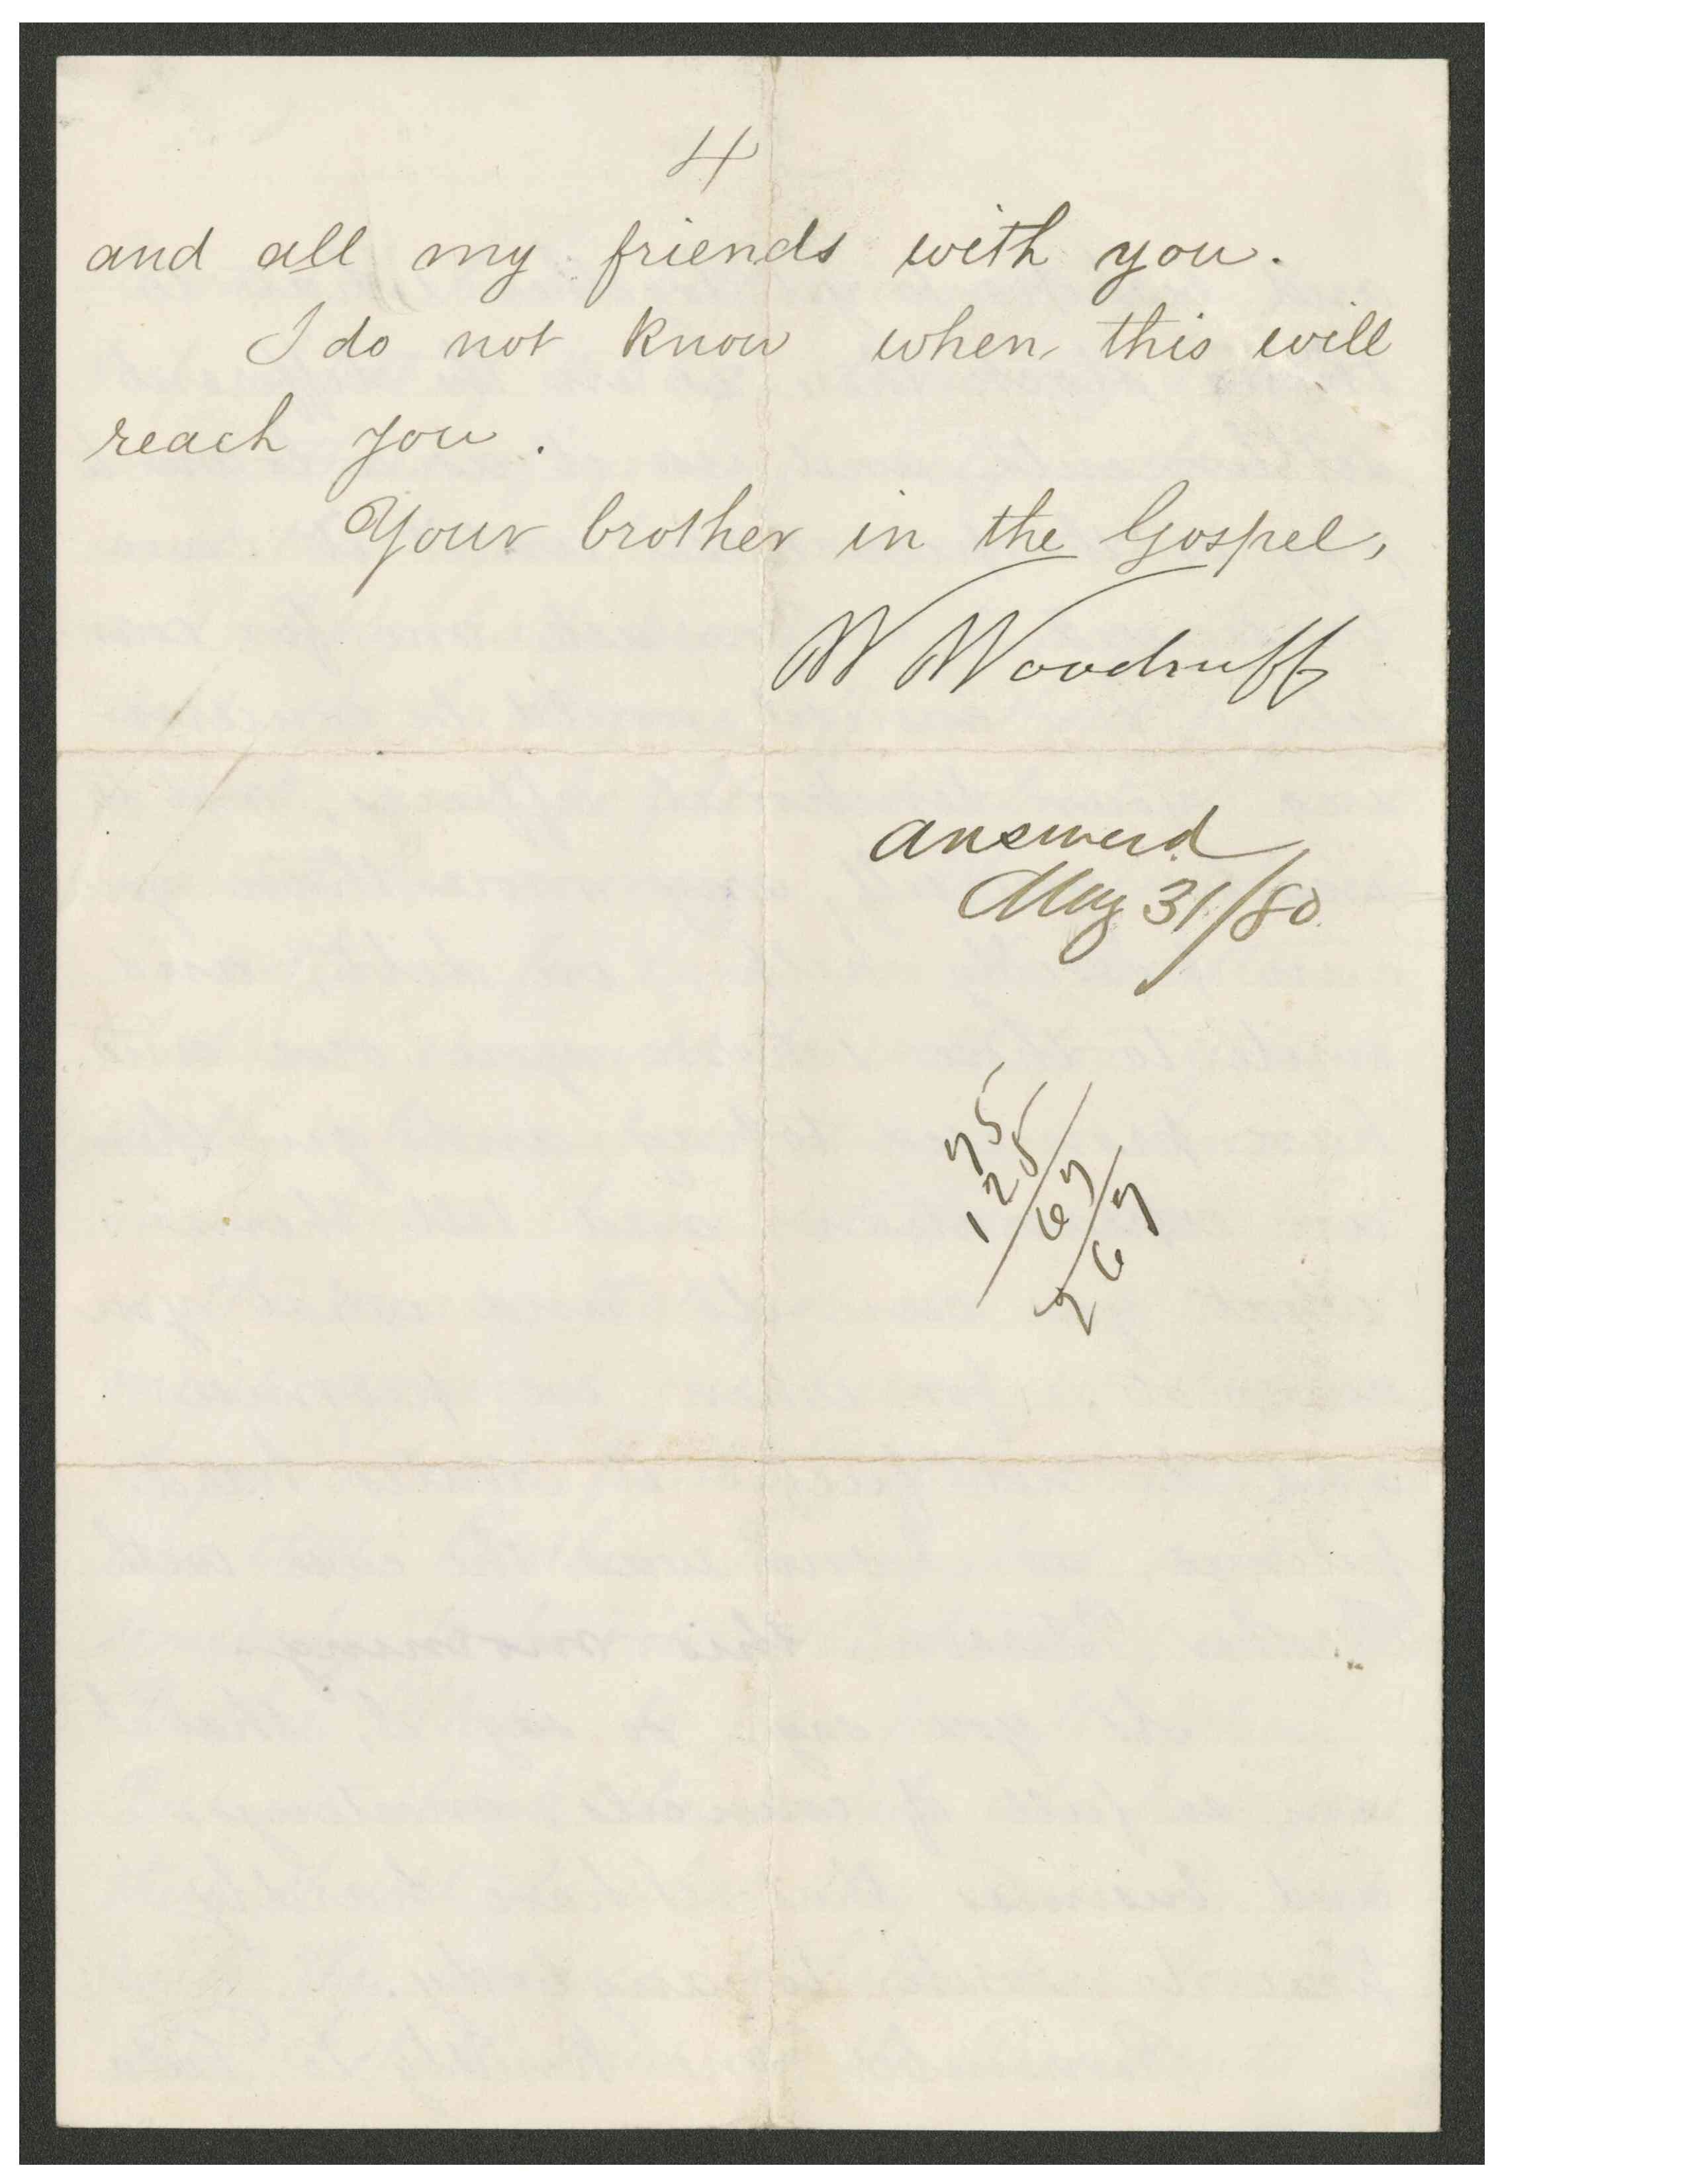 4
and all my friends with you.
I do not know when this will
reach you.
Your brother in the Gospel,
W Woodruff
answerd
May 31/80
75
125
67
267